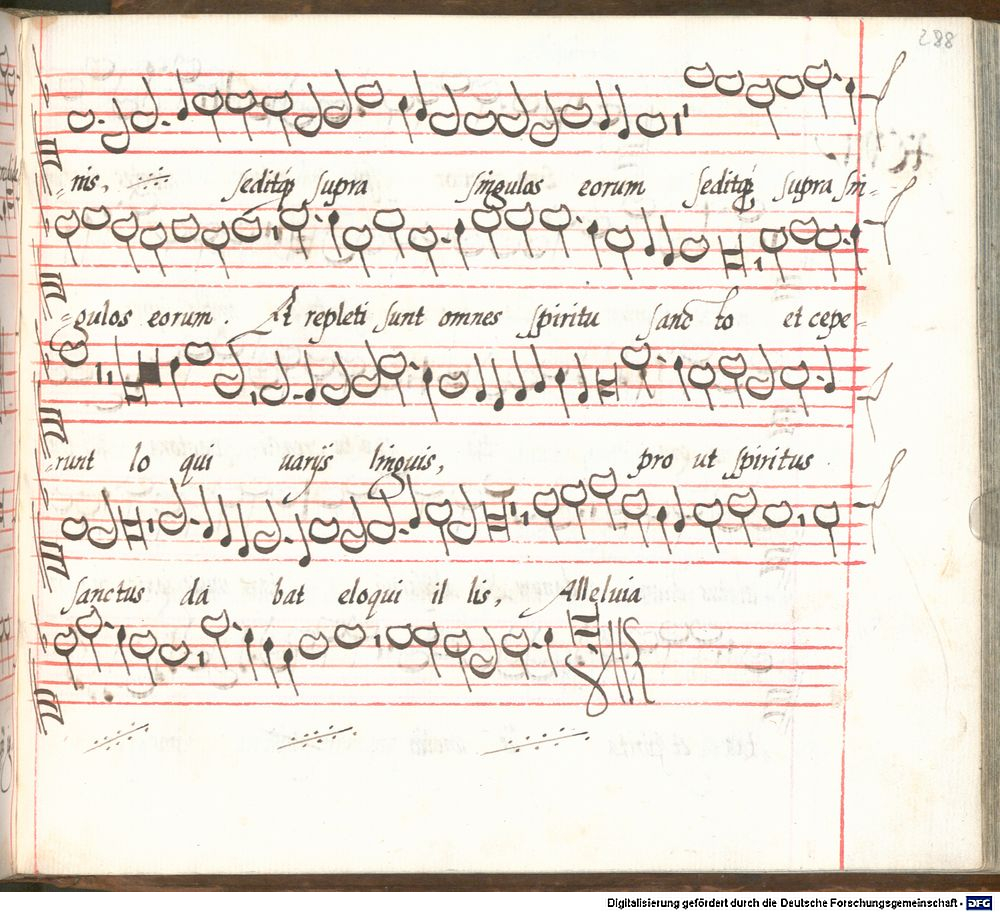 288
nis, seditq; supra singulos eorum seditq; supra sin-
gulos eorum Et repleti sunt omnes spiritu sanc to et cepe-
runt lo qui varijs linguis, pro ut spiritus
sanctus da bat eloqui il lis, Alleluia
Digitalisierung gefördert durch die Deutsche Forschungsgemeinschaft - DFG